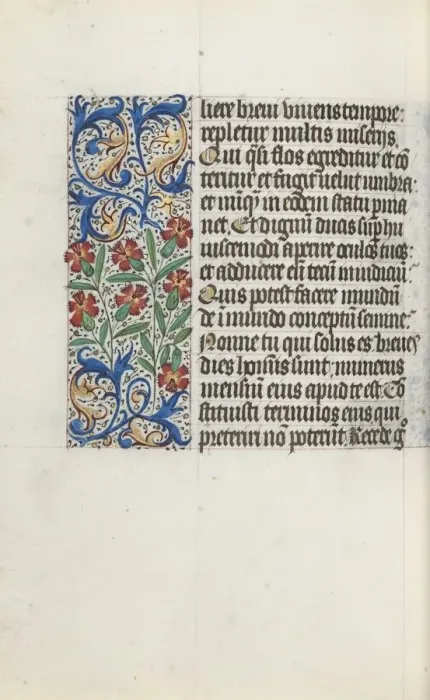 liere breui viuens tempore:
repletur multis miserijs
Qui q̃si flos egreditur et cõ
teritur et fugit uelut umbra:
et nũq̃ in eodem statu pma
net. Et dignũ ducis sup hu
iuscemodi aperire oculos tuos:
et adducere eũ tecũ in iudiciũ.
Quis potest facere mundũ
de ĩmundo conceptũ semine.
Nonne tu qui solus es. breues
dies hoĩnis sunt: numerus
mensiũ eius apud te est. Cõ
stituisti terminos eius qui
preteriri nõ poterũt. Recede g̊